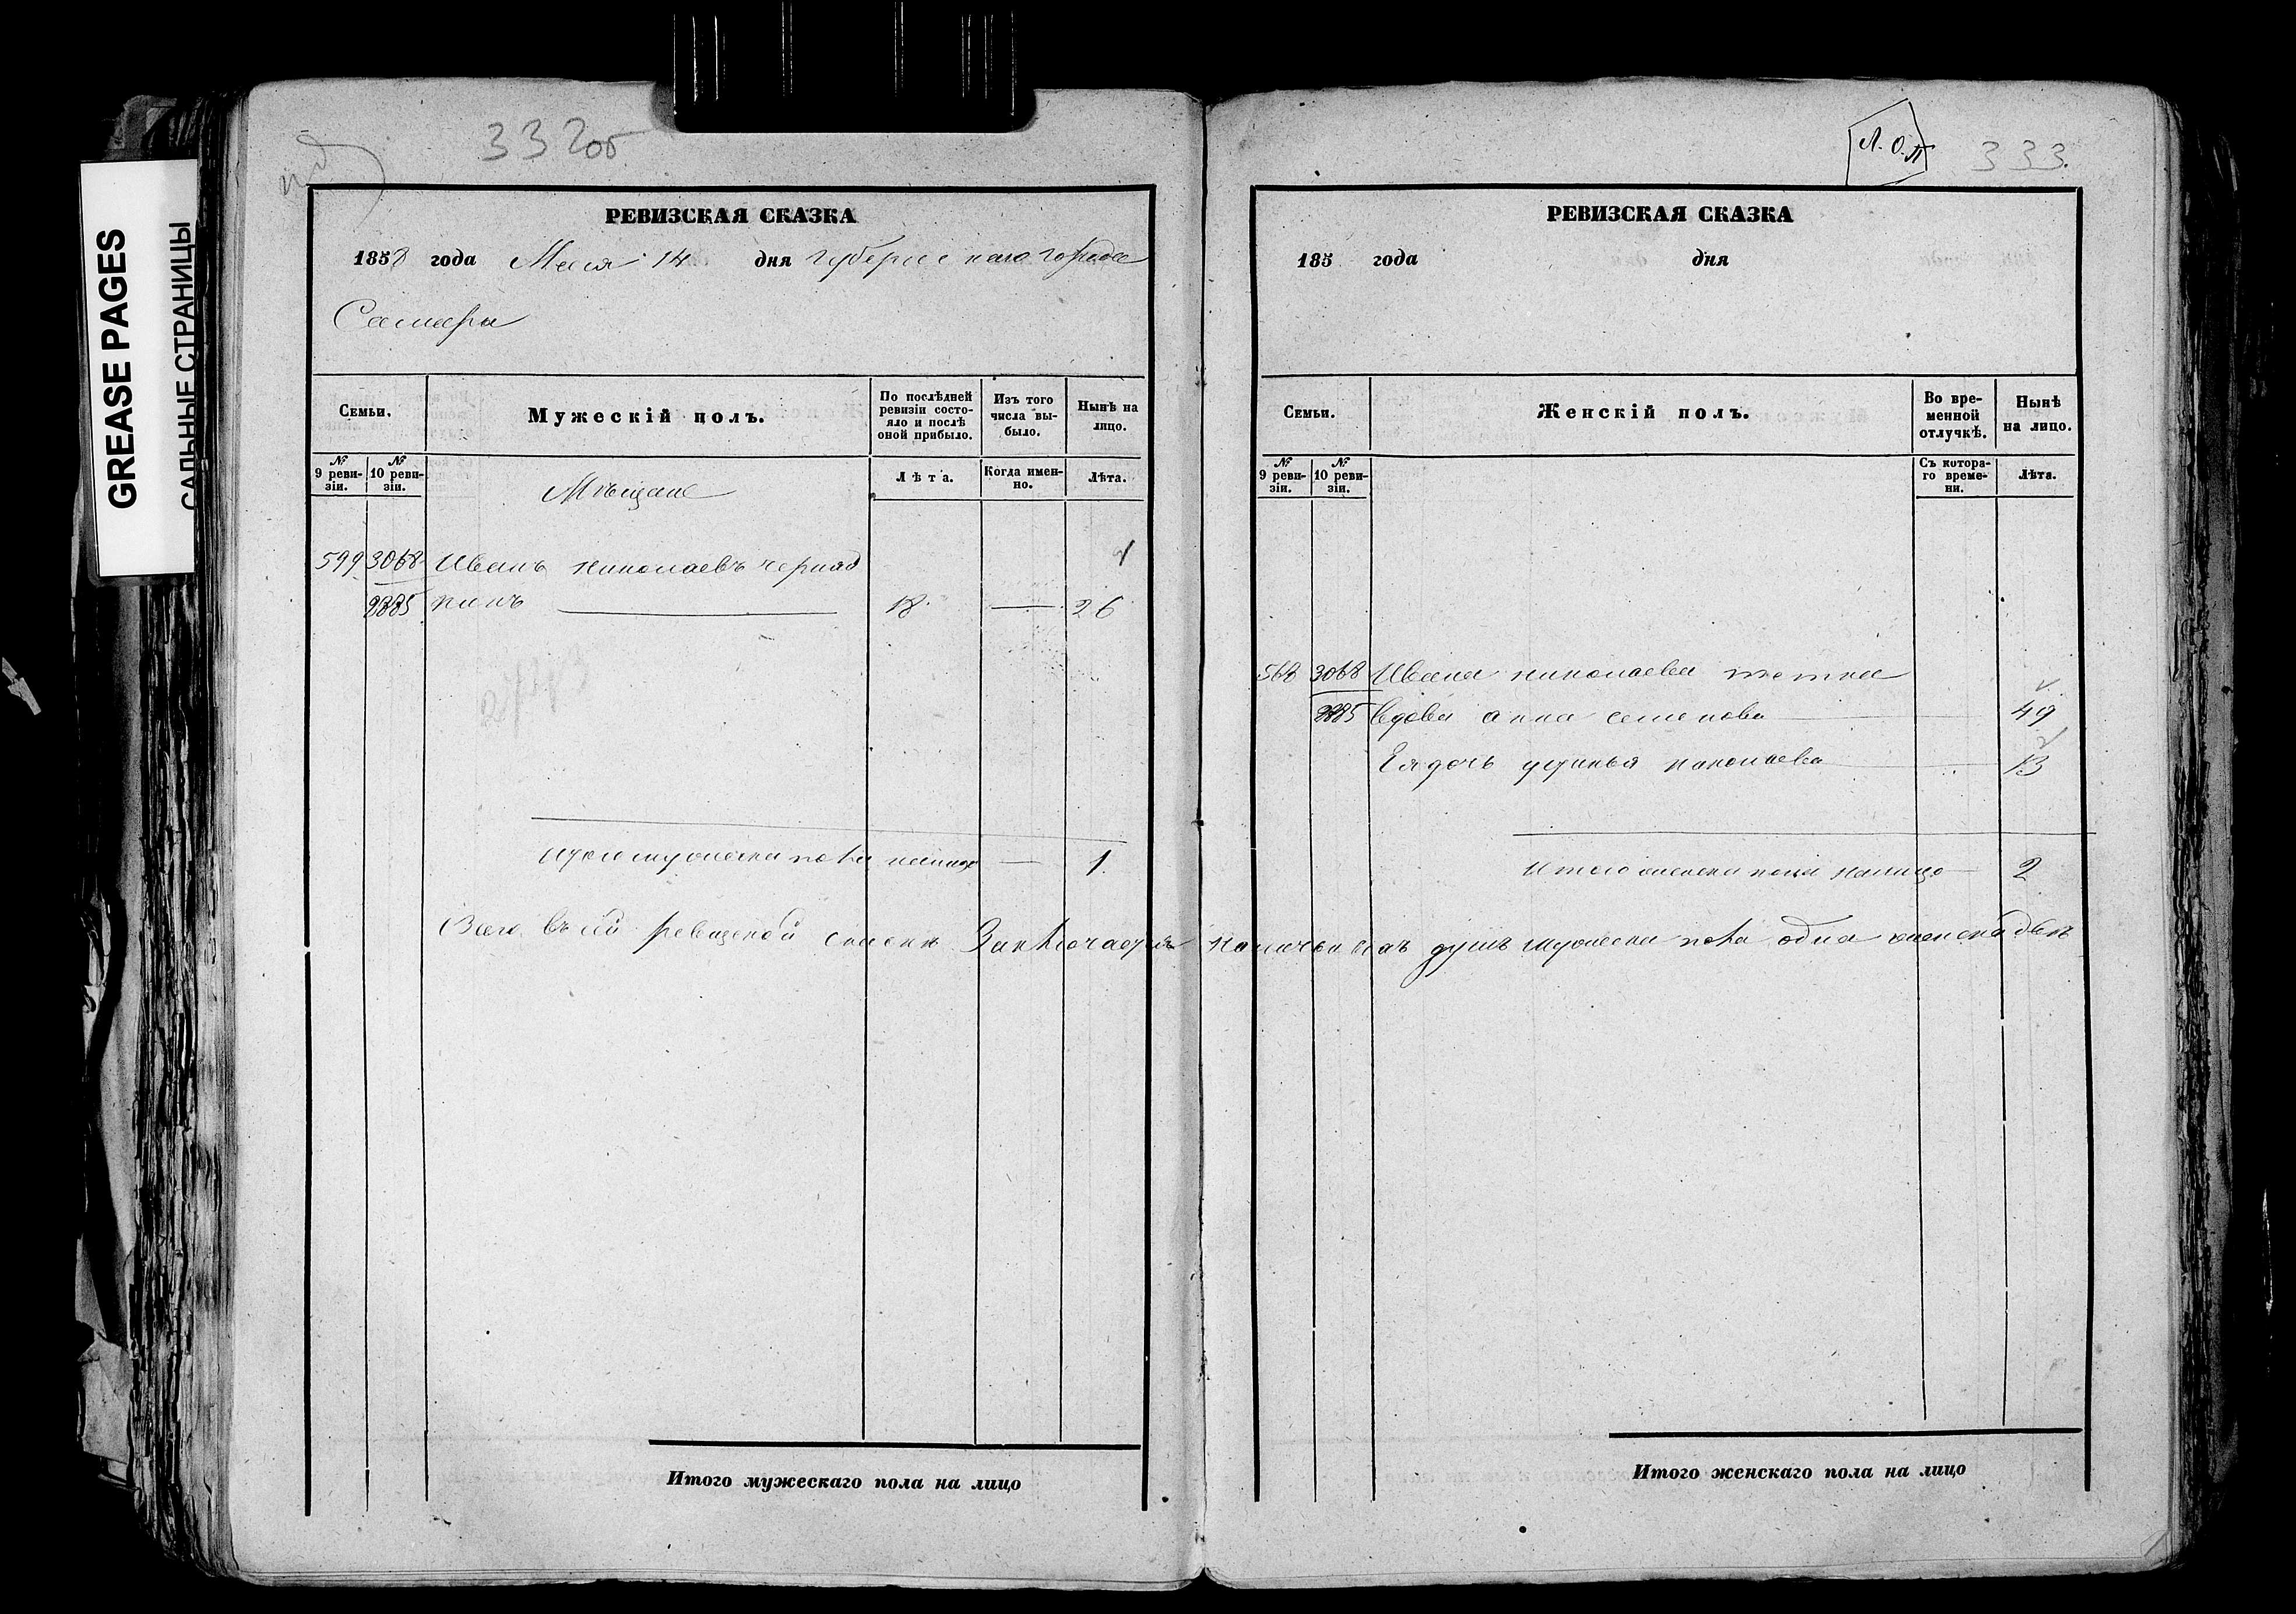 GREASE PAGES
САЛЬНЫЕ СТРАНИЦЫ
332об
РЕВИЗСКАЯ СКАЗКА
1858 года Мая 14 дня губернскаго города
Самары
Семьи.
Мужескій полъ.
По послѣдней ревизіи состояло и послѣ оной прибыло.
Изъ того числа выбыло.
Нынѣ на лицо.
№ 9 ревизіи.
№ 10 ревизіи.
Мѣщане
Лѣта.
Когда именно.
Лѣта.
599 3068 Иванъ Николаевъ
2885 18. — 26
Итого мужеска пола налицо — 1
Итого мужескаго пола на лицо
Л. О. П
333.
РЕВИЗСКАЯ СКАЗКА
185 года дня
Семьи.
Женскій полъ.
Во временной отлучкѣ.
Нынѣ на лицо.
№ 9 ревизіи.
№ 10 ревизіи.
Съ котораго времени.
Лѣта.
568 3068 Ивана Николаева тетка
2885 вдова анна семенова 49
Ея дочь устинья николаева 13
Итого женска пола налицо 2
Всего въ сей ревизской сказкѣ Заключается наличныхъ душъ мужеска пола одна женска двѣ
Итого женскаго пола на лицо